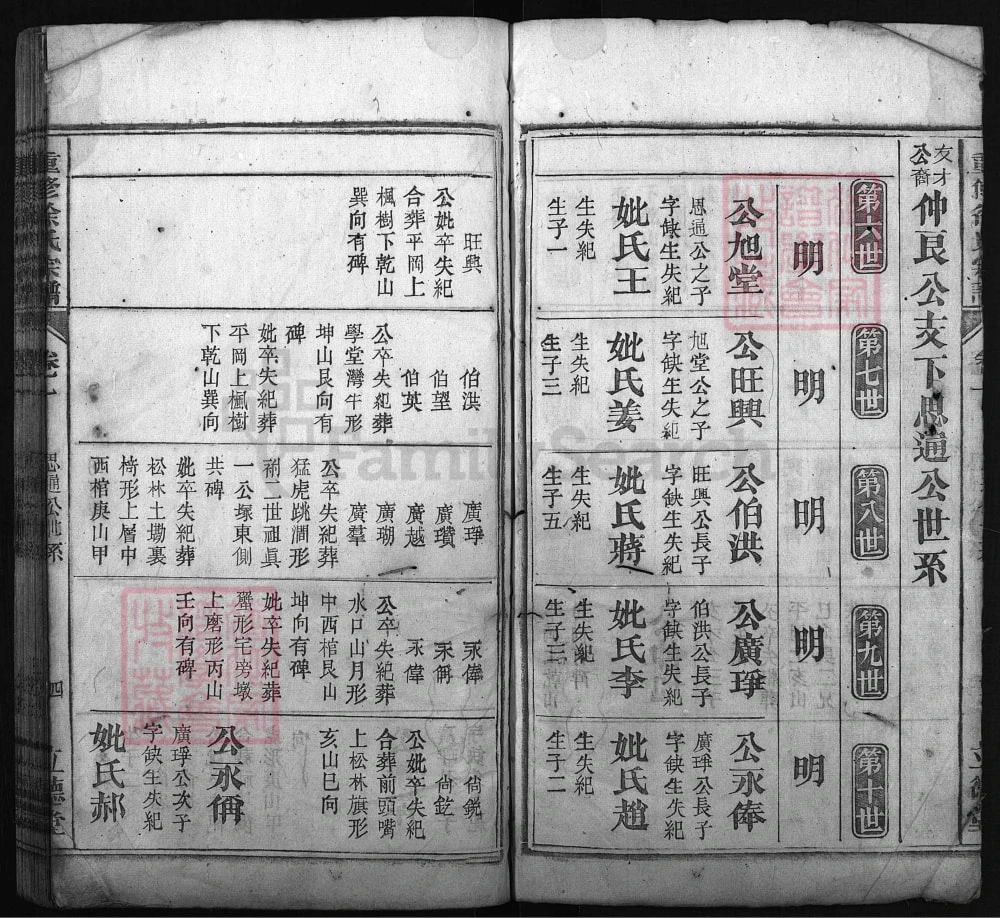 友才公裔仲良公支下思通公世系
第六世
第七世
第八世
第九世
第十世
明
明
明
明
明
公旭堂
思通公之子
字缺生失紀
妣氏王
生失紀
生子一
公旺興
旭堂公之子
字缺生失紀
妣氏姜
生失紀
生子三
公伯洪
旺興公長子
字缺生失紀
妣氏蔣
生失紀
生子五
公廣琤
伯洪公長子
字缺生失紀
妣氏李
生失紀
生子三
公永俸
廣琤公長子
字缺生失紀
妣氏趙
生失紀
生子二
旺興
公妣卒失紀
合葬平岡上
楓樹下乾山
巽向有碑
伯洪
伯望
伯英
公卒失紀葬
學堂灣牛形
坤山艮向有
碑
妣卒失紀葬
平岡上楓樹
下乾山巽向
廣琤
廣瓚
廣越
廣瑚
廣羣
公卒失紀葬
猛虎跳澗形
祔二世祖眞
一公塚東側
共碑
妣卒失紀葬
松林土塝裏
椅形上層中
西棺庚山甲
永俸
永偁
永偉
公卒失紀葬
水口山月形
中西棺艮山
坤向有碑
妣卒失紀葬
蟹形宅旁墩
上磨形丙山
壬向有碑
尙銳
尙釳
公妣卒失紀
合葬前頭嘴
上松林旗形
亥山巳向
公永偁
廣琤公次子
字缺生失紀
妣氏郝
重修徐氏宗譜
卷一
思通公世系
四
立德堂
FamilySearch